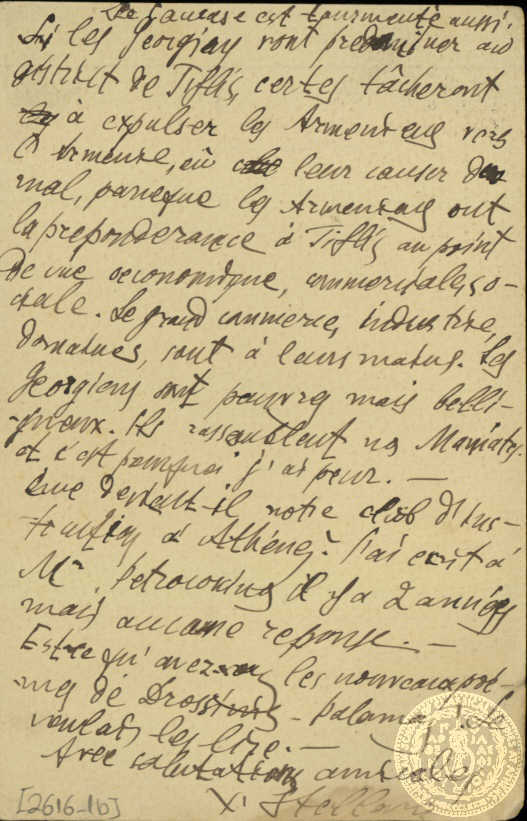 Le Caucase est tourmenté aussi.
Si les Georgiens vont predominer au
district de Tiflis, certes tâcheront
à expulser les Armeniens vers
l'Armenie, où leur causer du
mal, parceque les Armeniens ont
la preponderance à Tiflis au point
de vue oeconomique, commerciale, so-
ciale. Le grand commerce, industrie,
domaines, sont à leurs mains. Les
Georgiens sont pauvres mais belli-
queux. Ils rassemblent nos Maniates.
et c'est pourquoi j'ai peur. —
Que devient-il notre club d'ins-
truction à Athénes? J'ai ecrit à
Mr Petrocokino il y a 2 années
mais aucune reponse. —
Est-ce qu'avez les nouveaux poé-
mes de Drossinis - Palama? Je
voulais les lire. —
Avec salutations amicales
[2616-1b]